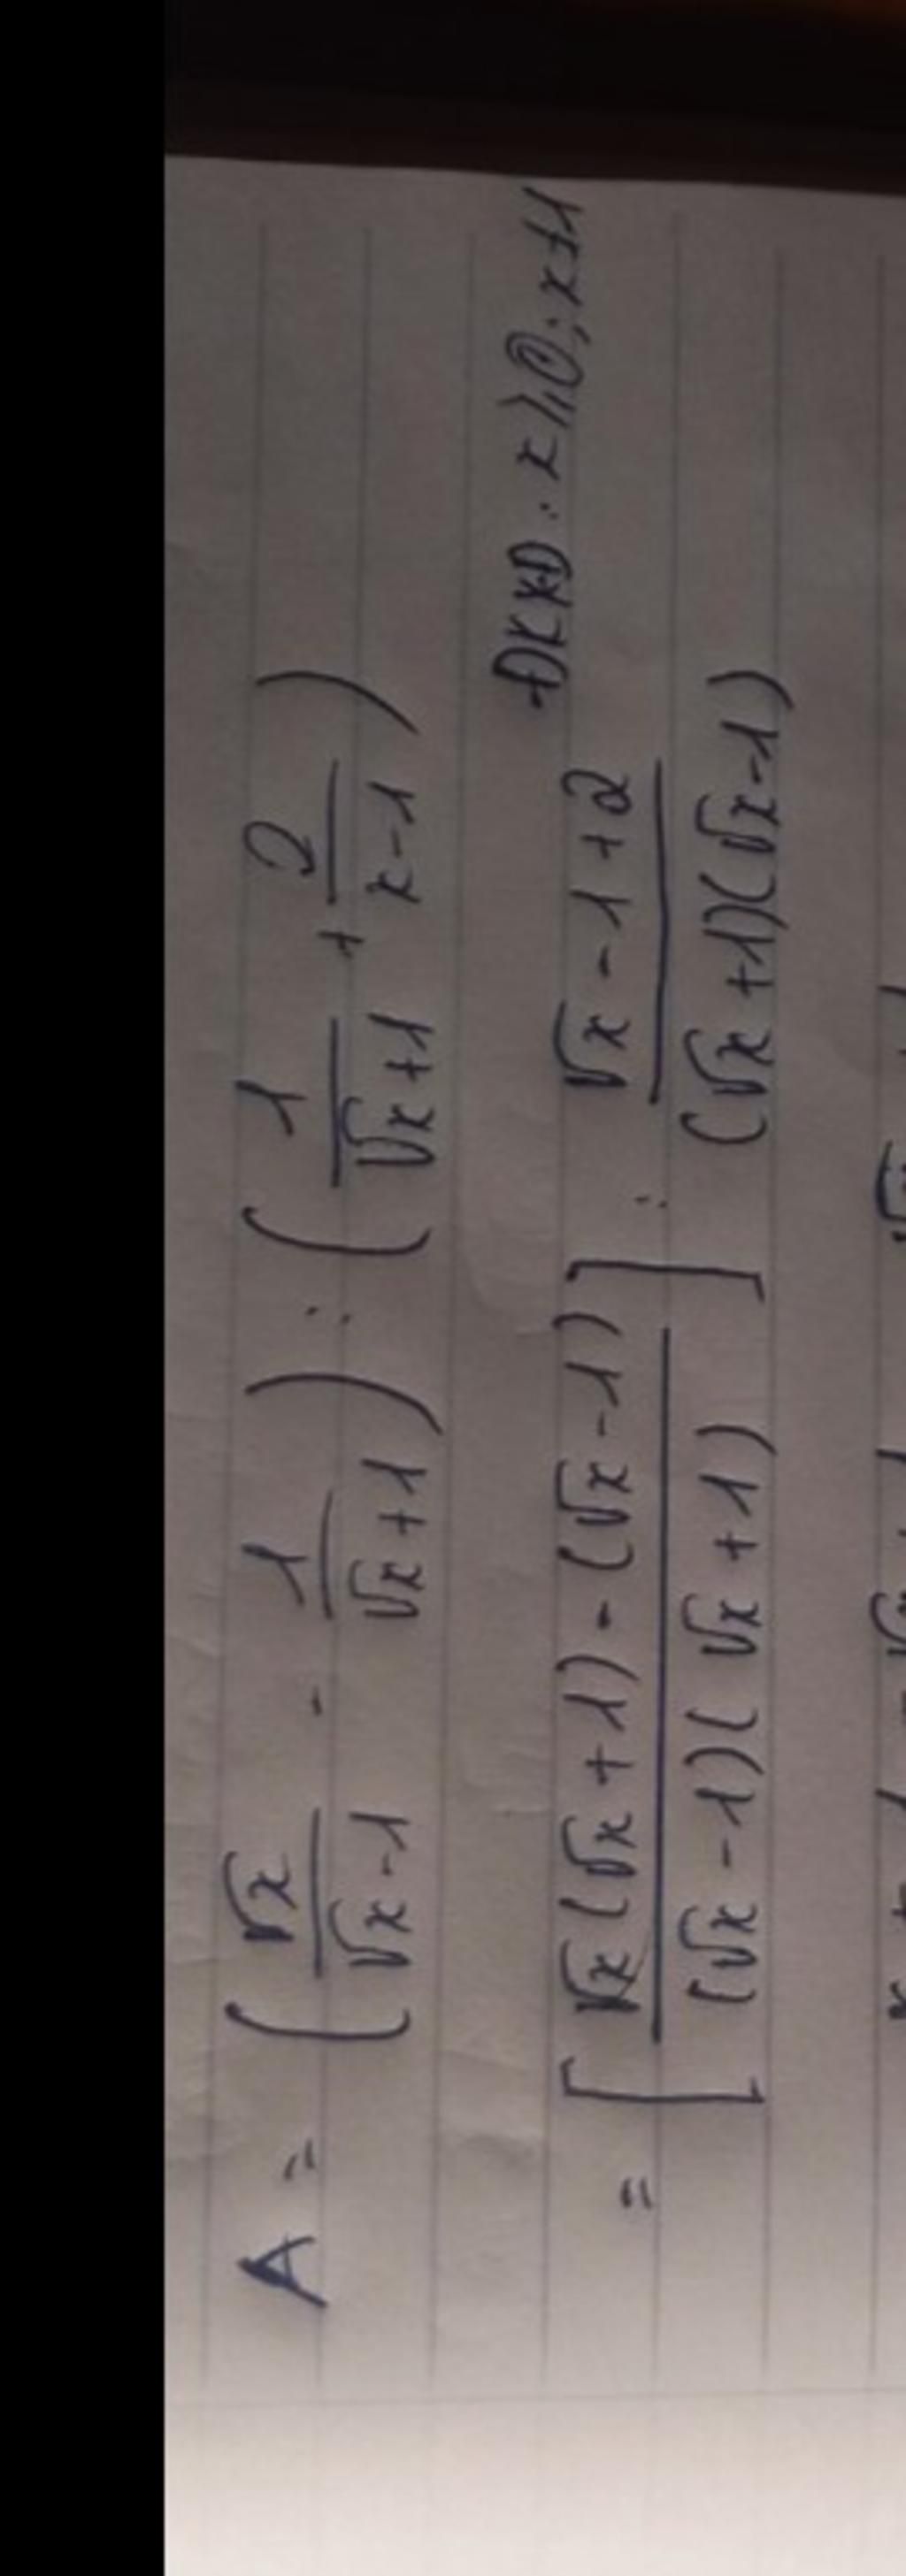 A = ( √x / (√x - 1) - 1 / (√x + 1) ) : ( 1 / (√x + 1) + 2 / (x - 1) )
ĐKXĐ : x ≥ 0 ; x ≠ 1
= [ (√x (√x + 1) - (√x - 1)) / ((√x - 1)(√x + 1)) ] : (√x - 1 + 2) / ((√x + 1)(√x - 1))